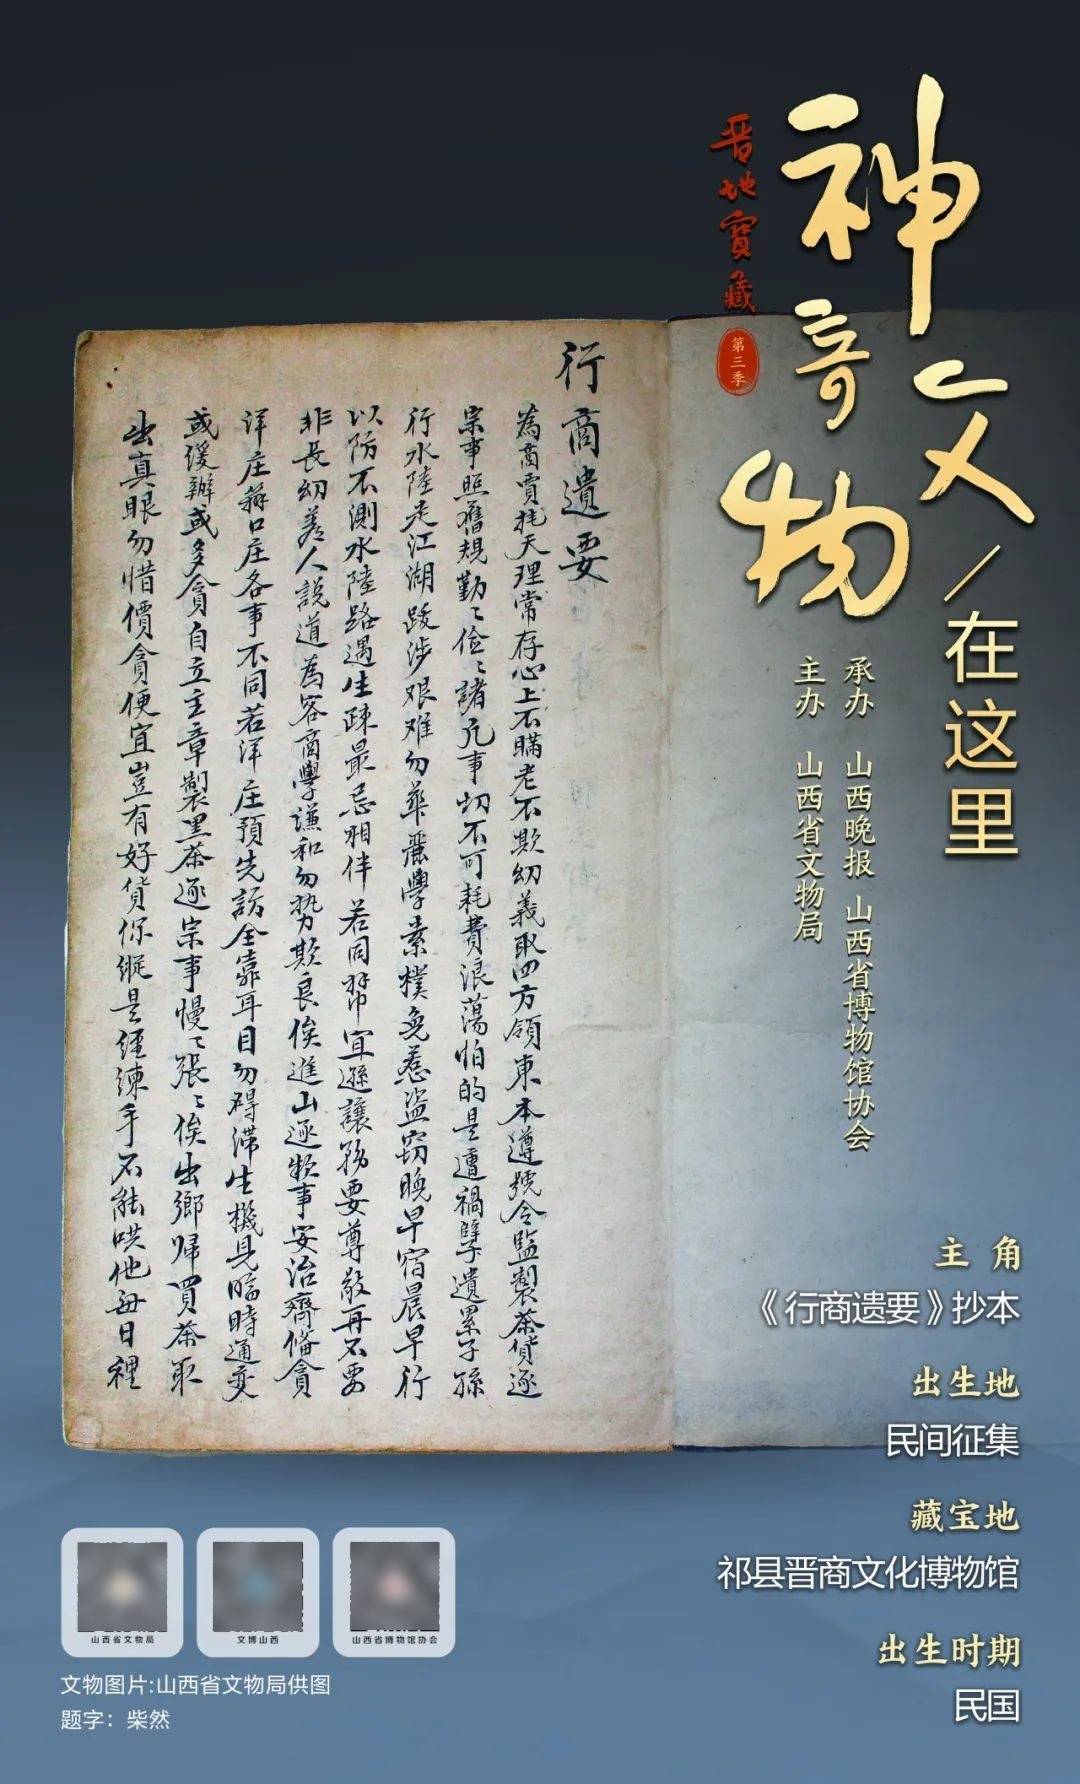 晋地寶藏
第三季
神奇文物/在这里
承办 山西晚报 山西省博物馆协会
主办 山西省文物局
行商遺要
為商賈把天理常存心上不瞞老不欺幼義取四方領東本遵號令監製茶貨逐
宗事照舊規勤〻儉〻諸凡事切不可耗費浪蕩怕的是遭禍孽遺累子孫
行水陸走江湖跋涉艰难勿華麗學素樸免惹盜窃晚早宿晨早行
以防不測水陸路遇生疎最忌相伴若同幇宜遜讓務要尊敬再不要
非長幼羞人說道為客商學謙和勿势欺良俟進山逐欵事安治齊俻貪
洋庄箱口庄各事不同若洋庄預先訪全靠耳目勿碍滞生機見臨時通变
或缓辦或多貪自立主章製黑茶逐宗事慢〻張〻俟出鄉歸買茶取
出真眼勿惜價貪便宜豈有好貨你縱是經練手不能哄他每日裡
主角
《行商遗要》抄本
出生地
民间征集
藏宝地
祁县晋商文化博物馆
出生时期
民国
山西省文物局
文博山西
山西省博物馆协会
文物图片:山西省文物局供图
题字：柴然